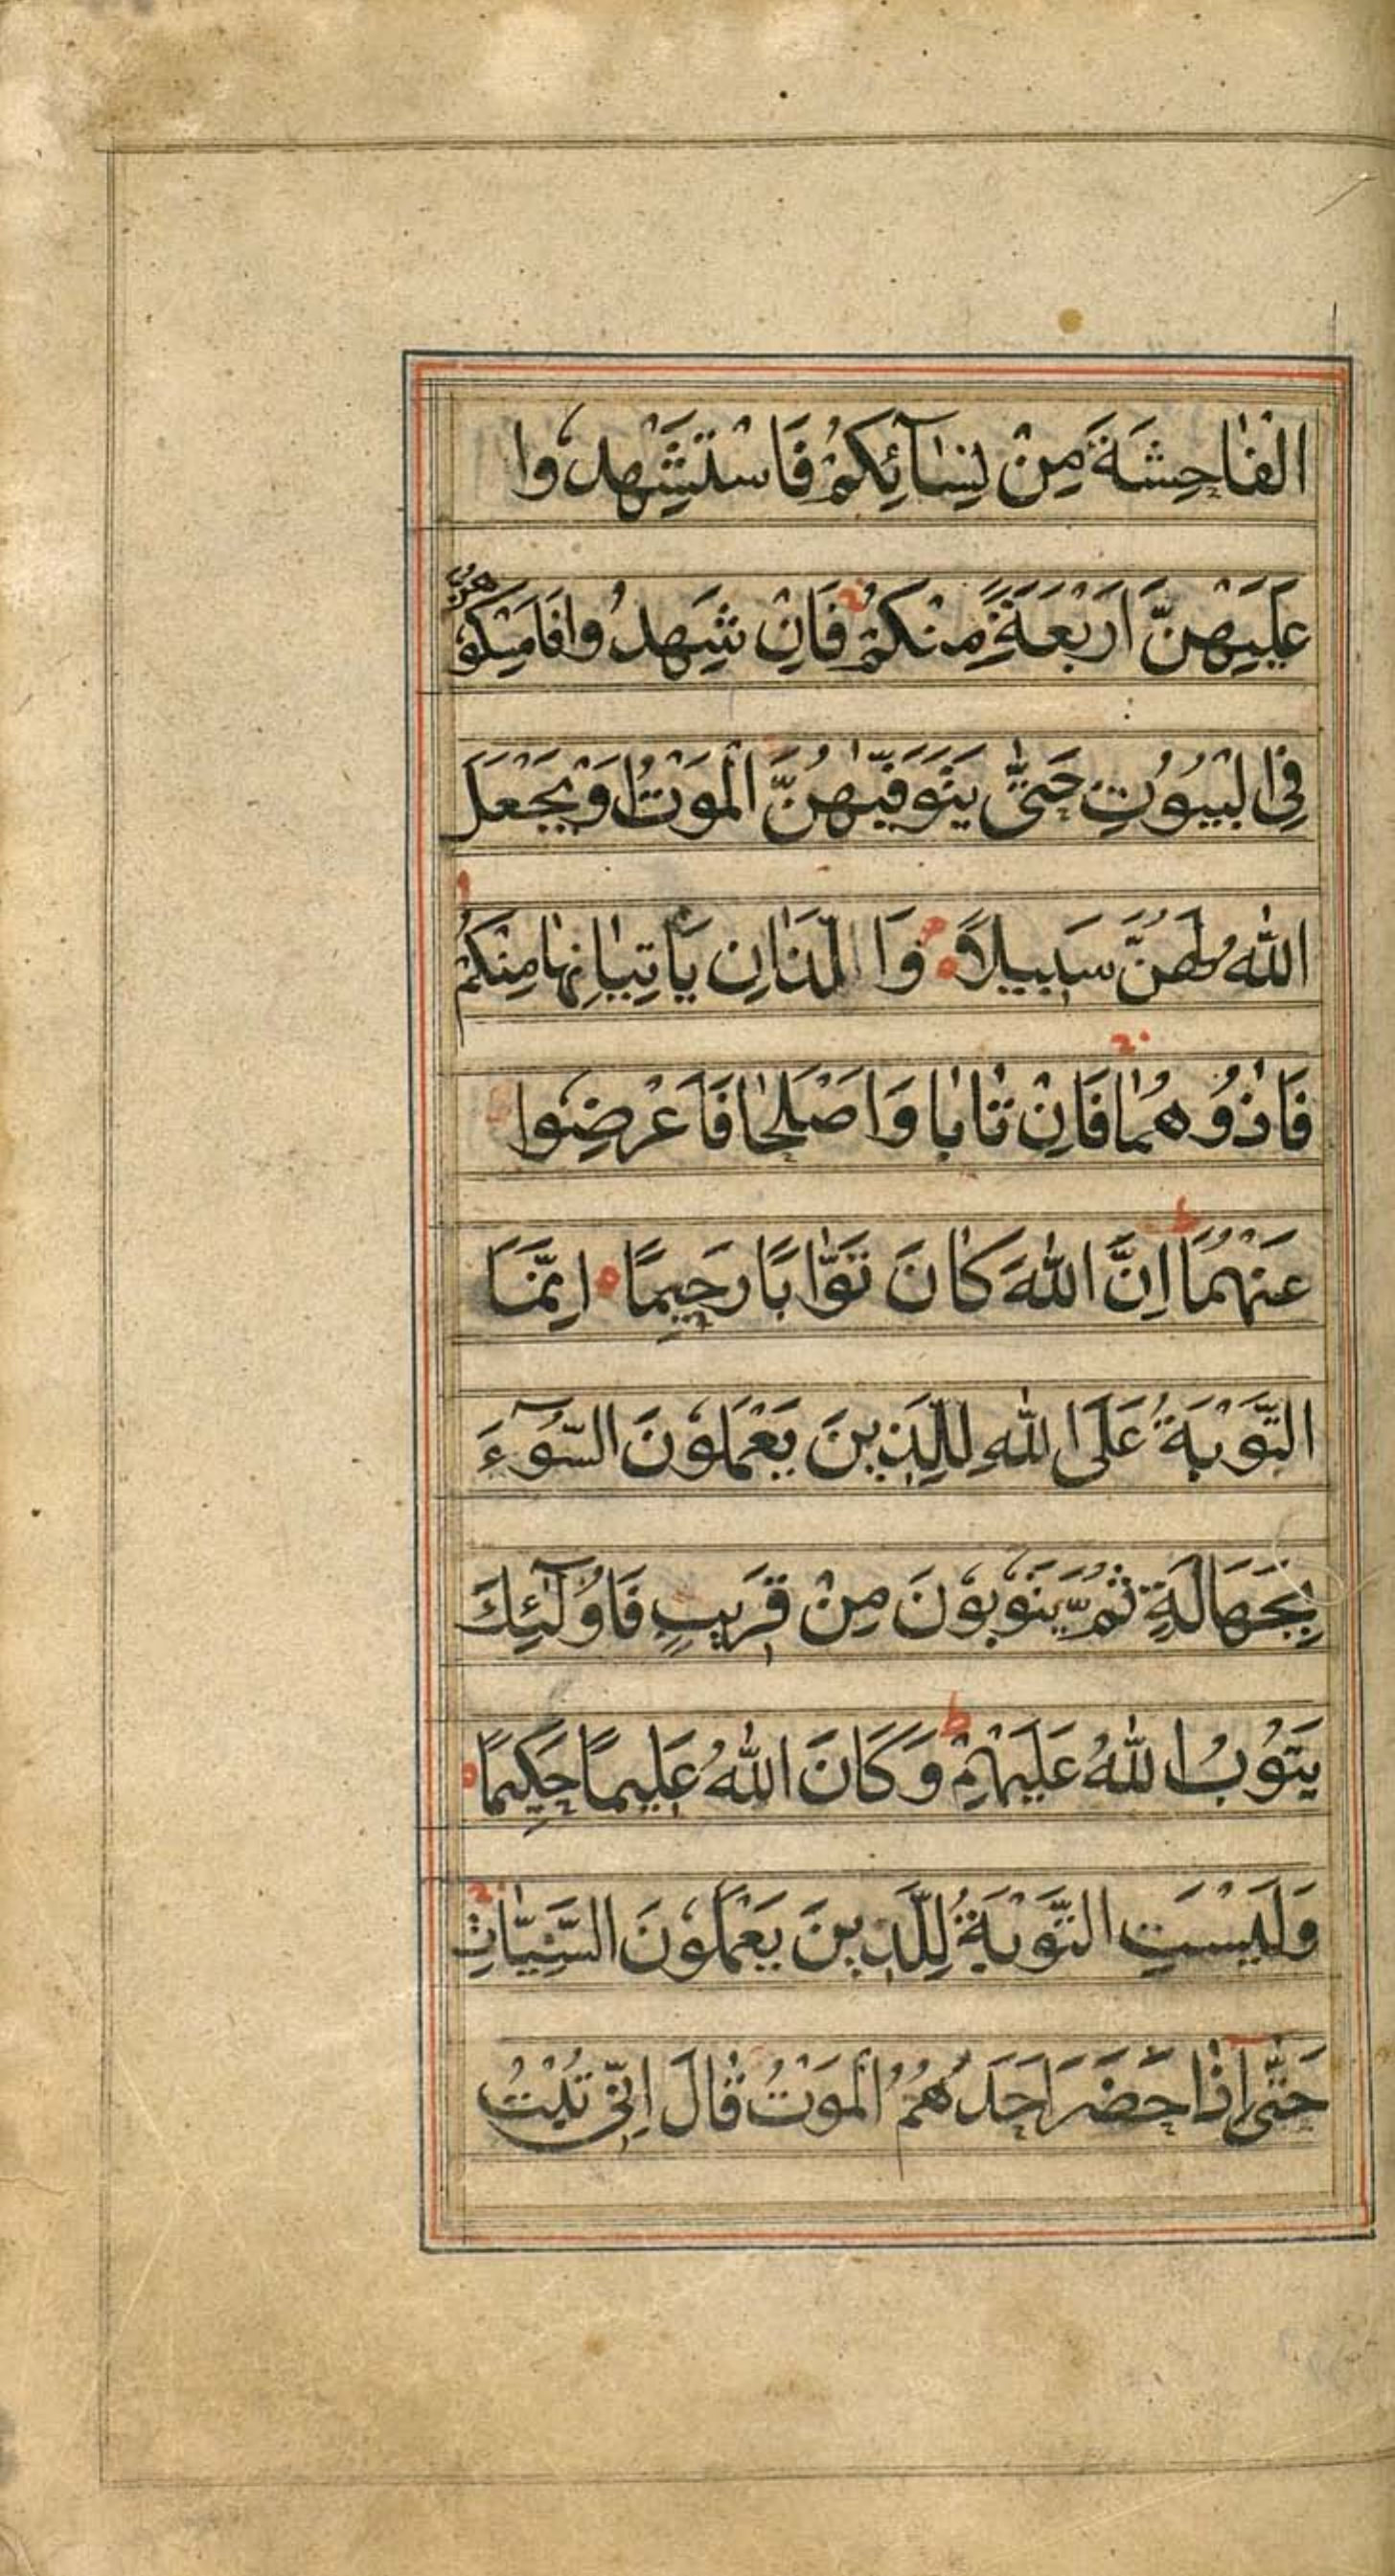 الْفَاحِشَةَ مِنْ نِسَآئِكُمْ فَاسْتَشْهِدُوا
عَلَيْهِنَّ اَرْبَعَةً مِنْكُمْ فَاِنْ شَهِدُوا فَامْسِكُوهُنَّ
فِى الْبُيُوتِ حَتّٰى يَتَوَفّٰيهُنَّ الْمَوْتُ اَوْ يَجْعَلَ
اللّٰهُ لَهُنَّ سَبِيلًا وَالَّذَانِ يَاْتِيَانِهَا مِنْكُمْ
فَاٰذُوهُمَا فَاِنْ تَابَا وَاَصْلَحَا فَاَعْرِضُوا
عَنْهُمَا اِنَّ اللّٰهَ كَانَ تَوَّابًا رَحِيمًا اِنَّمَا
التَّوْبَةُ عَلَى اللّٰهِ لِلَّذِينَ يَعْمَلُونَ السُّوٓءَ
بِجَهَالَةٍ ثُمَّ يَتُوبُونَ مِنْ قَرِيبٍ فَاُولٰٓئِكَ
يَتُوبُ اللّٰهُ عَلَيْهِمْ وَكَانَ اللّٰهُ عَلِيمًا حَكِيمًا
وَلَيْسَتِ التَّوْبَةُ لِلَّذِينَ يَعْمَلُونَ السَّيِّاٰتِ
حَتّٰى اِذَا حَضَرَ اَحَدَهُمُ الْمَوْتُ قَالَ اِنِّى تُبْتُ